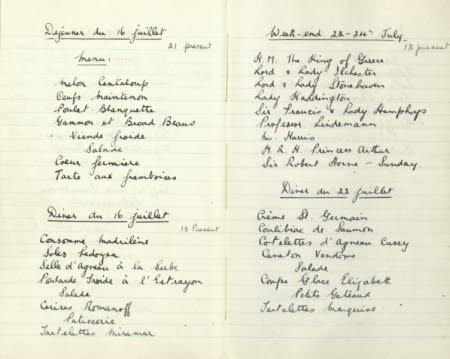 Déjeuner du 16 juillet
21 present
Menu:
Melon Cantaloup
Oeufs Maintenon
Poulet Blanquette
Gammon et Broad Beans
Viande froide
Salade
Coeur fermière
Tarte aux framboises
Diner du 16 juillet
18 Present
Consommé Madrilène
Soles Ledoyen
Selle d'Agneau à la
Poularde Froide à l'Estragon
Salade
Cerises Romanoff
Patisserie
Tartelettes Miramar
Week-end 22-24th July.
12 present
H.M. The King of Greece
Lord & Lady Ilchester
Lord & Lady Stonehaven
Lady Haddington
Sir Francis & Lady Humphrys
Professor Lindemann
Mr. Harris
H.R.H. Princess Arthur
Sir Robert Horne - Sunday
Diner du 22 juillet
Crème St. Germain
Coulibiac de Saumon
Cotelettes d'Agneau
Caneton Vendome
Salade
Coupe Glace Elizabeth
Petits Gateaux
Tartelettes Marquise